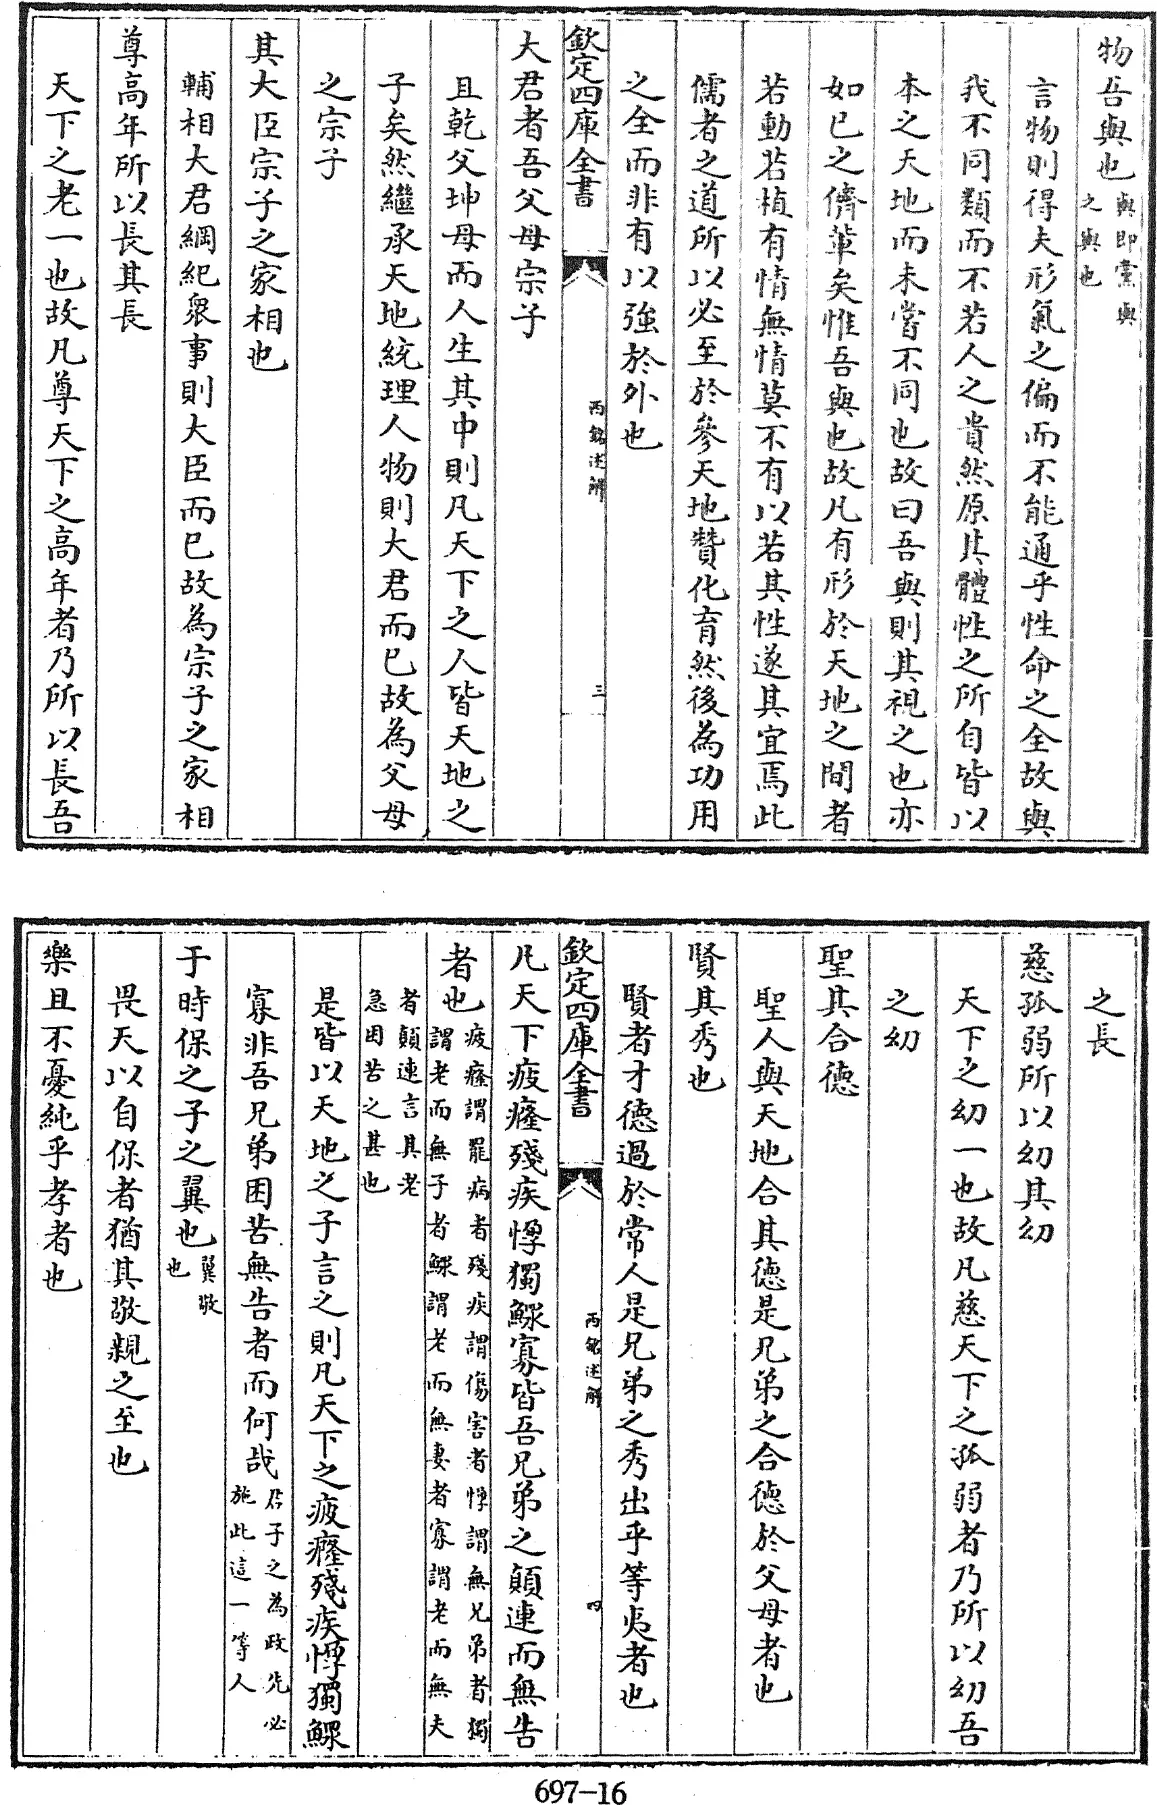 物吾與也與即黨與之與也
言物則得夫形氣之偏而不能通乎性命之全故與
我不同類而不若人之貴然原其體性之所自皆以
本之天地而未嘗不同也故曰吾與則其視之也亦
如已之儕軰矣惟吾與也故凡有形於天地之間者
若動若植有情無情莫不有以若其性遂其宜焉此
儒者之道所以必至於參天地贊化育然後為功用
之全而非有以強於外也
欽定四庫全書
西銘述解
三
大君者吾父母宗子
且乾父坤母而人生其中則凡天下之人皆天地之
子矣然繼承天地統理人物則大君而已故為父母
之宗子
其大臣宗子之家相也
輔相大君綱紀衆事則大臣而已故為宗子之家相
尊高年所以長其長
天下之老一也故凡尊天下之高年者乃所以長吾
之長
慈孤弱所以幼其幼
天下之幼一也故凡慈天下之孤弱者乃所以幼吾
之幼
聖其合德
聖人與天地合其德是兄弟之合德於父母者也
賢其秀也
賢者才德過於常人是兄弟之秀出乎等夷者也
欽定四庫全書
西銘述解
四
凡天下疲癃殘疾惸獨鰥寡皆吾兄弟之顛連而無告
者也疲癃謂罷病者殘疾謂傷害者惸謂無兄弟者獨謂老而無子者鰥謂老而無妻者寡謂老而無夫
者顛連言其老急困苦之甚也
是皆以天地之子言之則凡天下之疲癃殘疾惸獨鰥
寡非吾兄弟困苦無告者而何哉君子之為政先必施此這一等人
于時保之子之翼也翼敬也
畏天以自保者猶其敬親之至也
樂且不憂純乎孝者也
697-16